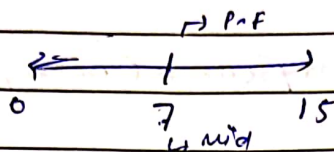 ↳ PnF
0 7 15
↳ Mid